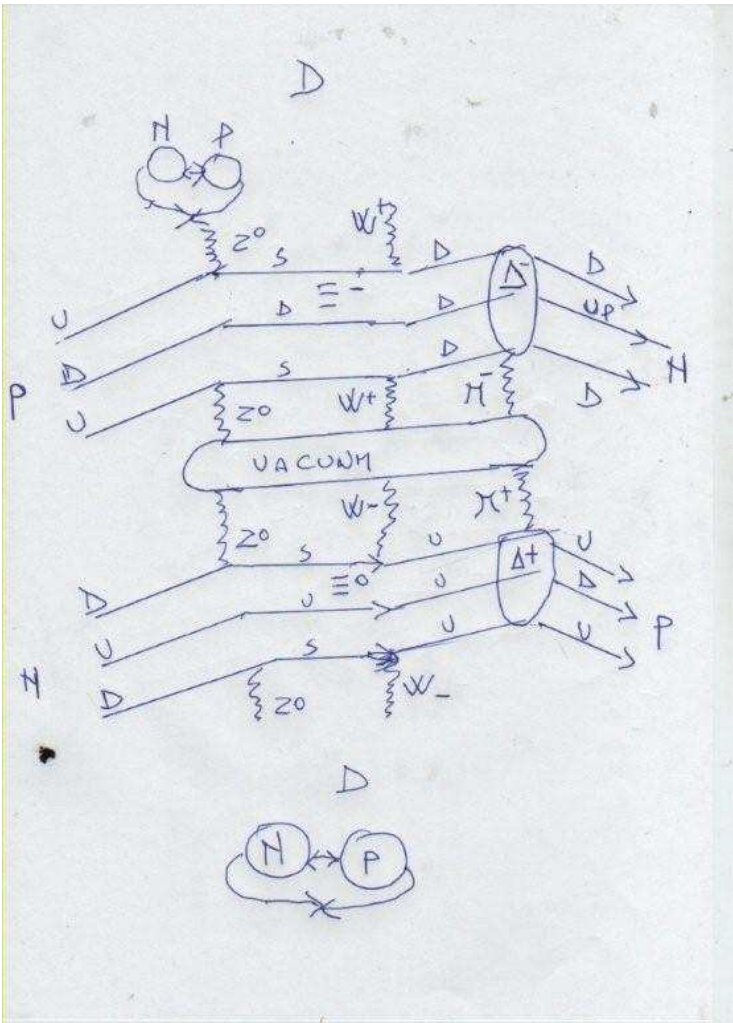 D
N P
W+
Z0 S D Δ- D
Ξ- D D UP
U D N
P D S D D
U Z0 W+ π-
VACUUM
W- π+
Z0 S U Δ+ U
D Ξ0 U U D
U S U U P
N D Z0 W-
D
N P